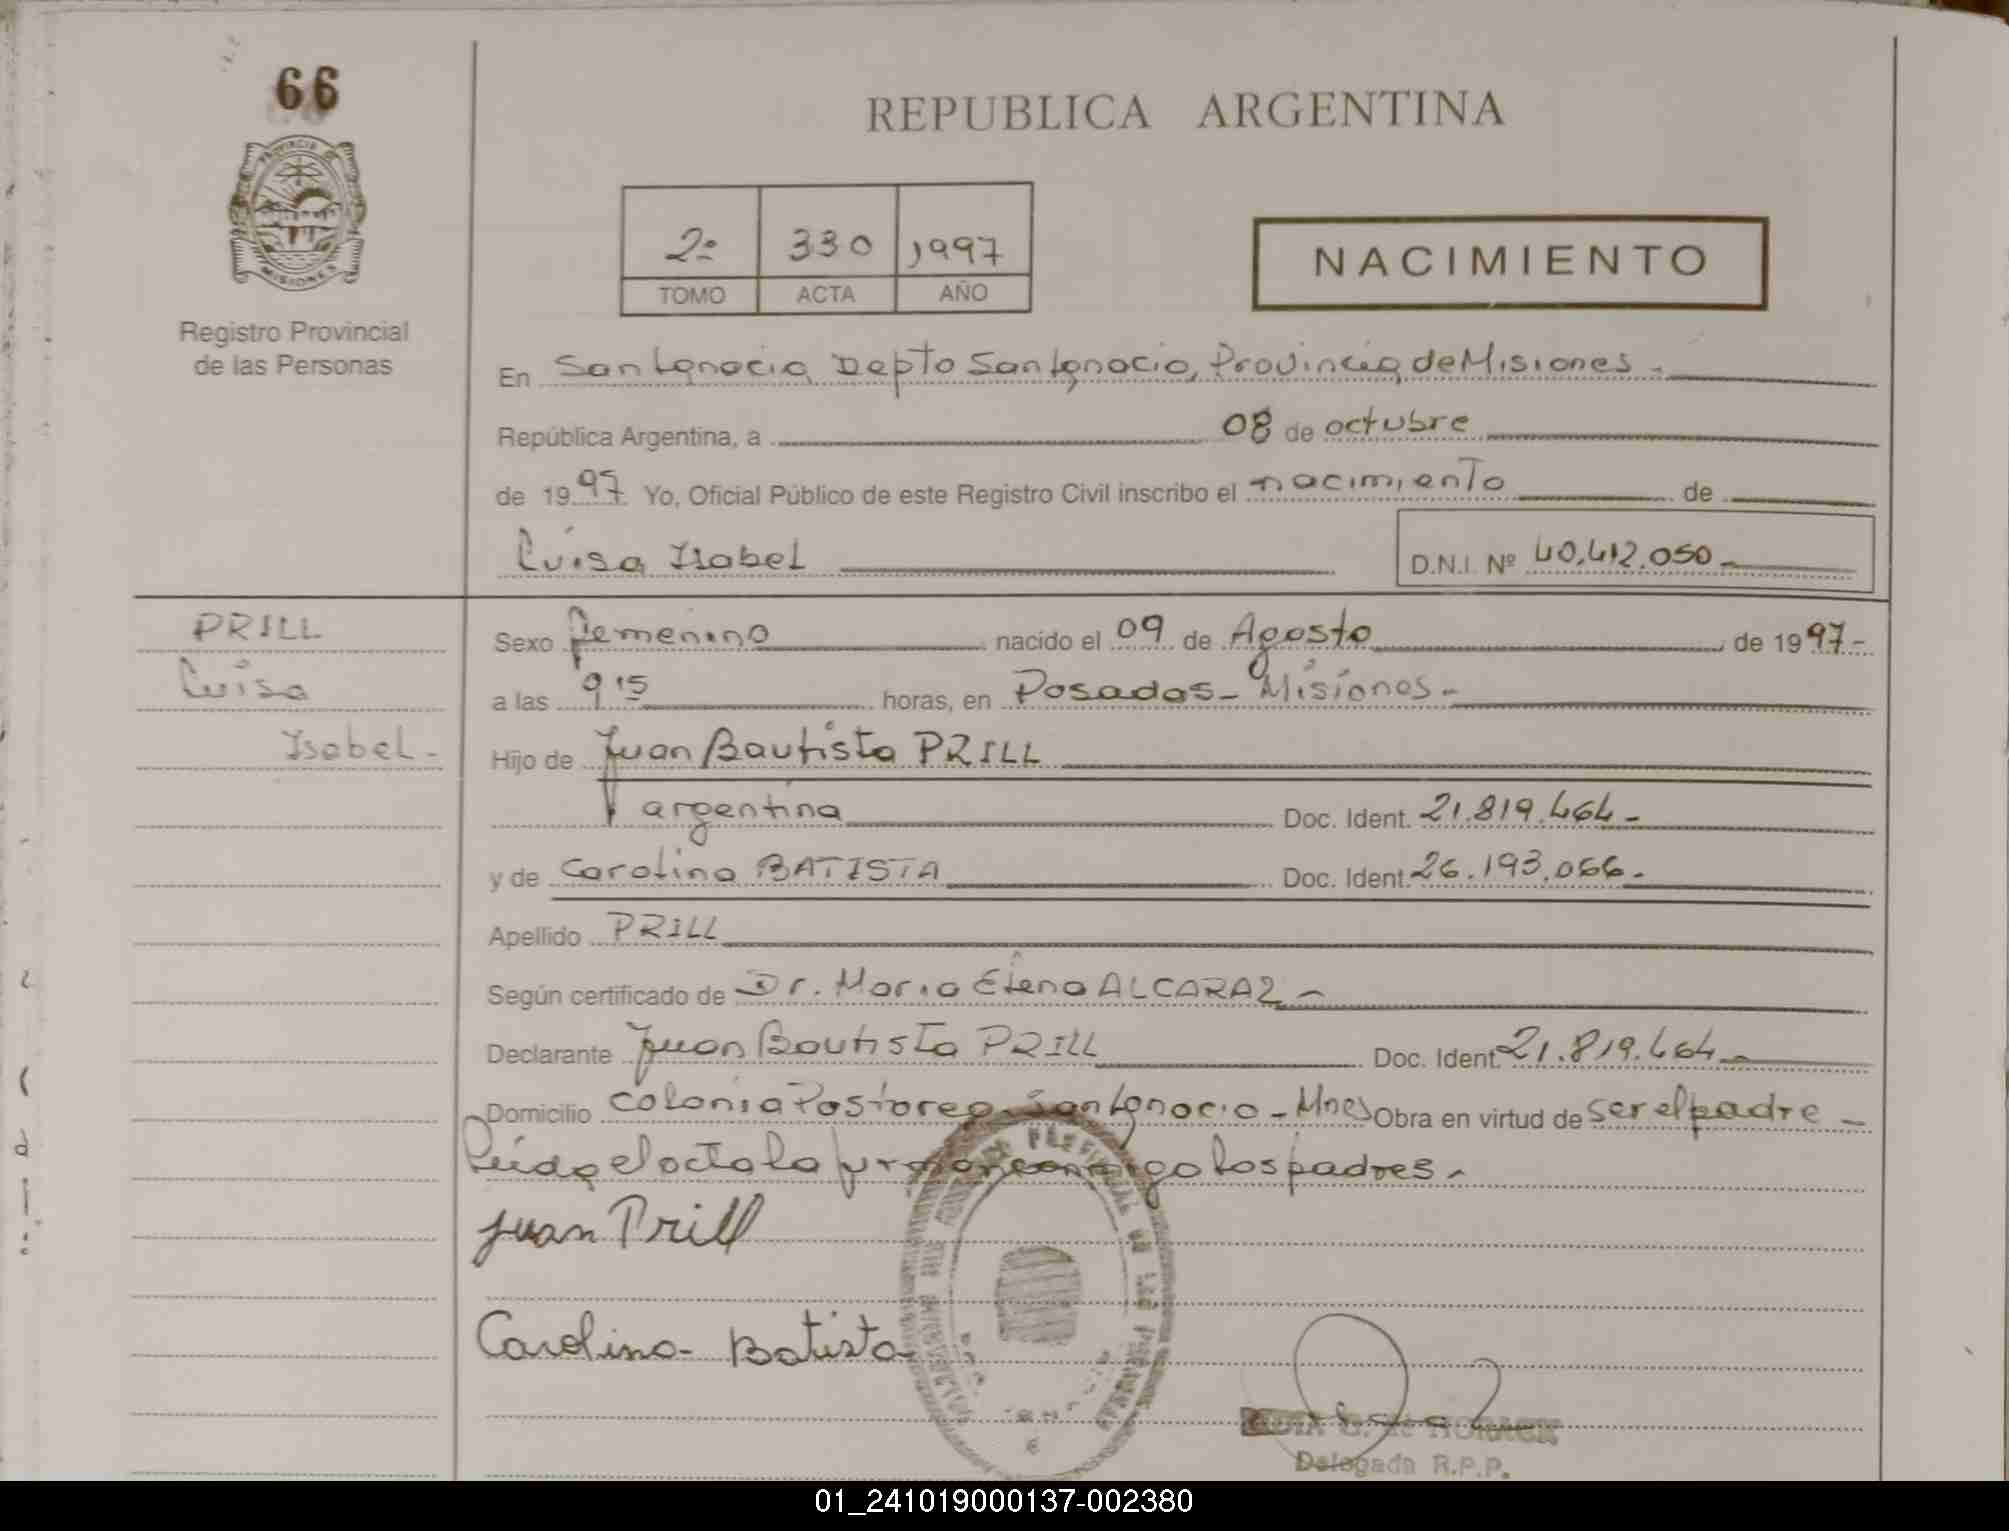 66
REPUBLICA ARGENTINA
PROVINCIA DE
MISIONES
Registro Provincial
de las Personas
2º 330 1997
TOMO ACTA AÑO
NACIMIENTO
En San Ignacio, Depto San Ignacio, Provincia de Misiones.-
República Argentina, a 08 de octubre
de 1997 Yo, Oficial Público de este Registro Civil inscribo el nacimiento de
Luisa Isabel D.N.I. Nº 40.412.050-
PRILL
Luisa
Isabel-
Sexo femenino nacido el 09 de Agosto de 1997-
a las 9 15 horas, en Posadas- Misiones-
Hijo de Juan Bautista PRILL
argentina Doc. Ident. 21.819.464-
y de Carolina BATISTA Doc. Ident. 26.193.066-
Apellido PRILL
Según certificado de Dr. Maria Elena ALCARAZ-
Declarante Juan Bautista PRILL Doc. Ident. 21.819.464-
Domicilio Colonia Pastoreo- San Ignacio- Mnes Obra en virtud de ser el padre-
Leída el acta la firman conmigo los padres-
Juan Prill
Carolina- Batista
G. de HORACK
Delegada R.P.P.
01_241019000137-002380